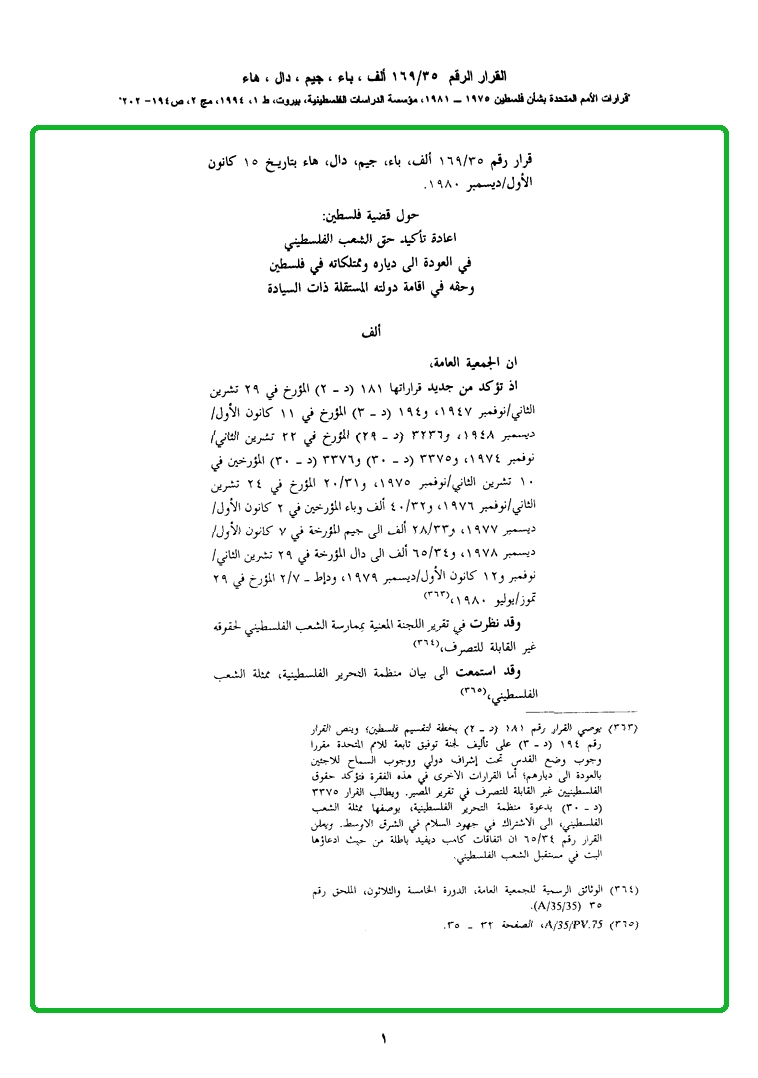 القرار الرقم ١٦٩/٣٥ ألف ، باء ، جيم ، دال ، هاء
"قرارات الأمم المتحدة بشأن فلسطين ١٩٧٥ ــ ١٩٨١، مؤسسة الدراسات الفلسطينية، بيروت، ط ١، ١٩٩٤، مج ٢، ص١٩٤- ٢٠٢"
قرار رقم ١٦٩/٣٥ ألف، باء، جيم، دال، هاء بتاريخ ١٥ كانون
الأول/ديسمبر ١٩٨٠.
حول قضية فلسطين:
اعادة تأكيد حق الشعب الفلسطيني
في العودة الى دياره وممتلكاته في فلسطين
وحقه في اقامة دولته المستقلة ذات السيادة
ألف
ان الجمعية العامة،
اذ تؤكد من جديد قراراتها ١٨١ (د ــ ٢) المؤرخ في ٢٩ تشرين
الثاني/نوفمبر ١٩٤٧، و١٩٤ (د ــ ٣) المؤرخ في ١١ كانون الأول/
ديسمبر ١٩٤٨، و٣٢٣٦ (د ــ ٢٩) المؤرخ في ٢٢ تشرين الثاني/
نوفمبر ١٩٧٤، و٣٣٧٥ (د ــ ٣٠) و٣٣٧٦ (د ــ ٣٠) المؤرخين في
١٠ تشرين الثاني/نوفمبر ١٩٧٥، و٢٠/٣١ المؤرخ في ٢٤ تشرين
الثاني/نوفمبر ١٩٧٦، و٤٠/٣٢ ألف وباء المؤرخين في ٢ كانون الأول/
ديسمبر ١٩٧٧، و٢٨/٣٣ ألف الى جيم المؤرخة في ٧ كانون الأول/
ديسمبر ١٩٧٨، و٦٥/٣٤ ألف الى دال المؤرخة في ٢٩ تشرين الثاني/
نوفمبر و١٢ كانون الأول/ديسمبر ١٩٧٩، ودإط ــ ٢/٧ المؤرخ في ٢٩
تموز/يوليو ١٩٨٠،(٣٦٣)
وقد نظرت في تقرير اللجنة المعنية بممارسة الشعب الفلسطيني لحقوقه
غير القابلة للتصرف،(٣٦٤)
وقد استمعت الى بيان منظمة التحرير الفلسطينية، ممثلة الشعب
الفلسطيني،(٣٦٥)
(٣٦٣) يوصي القرار رقم ١٨١ (د ــ ٢) بخطة لتقسيم فلسطين؛ وينص القرار
رقم ١٩٤ (د ــ ٣) على تأليف لجنة توفيق تابعة للامم المتحدة مقررا
وجوب وضع القدس تحت إشراف دولي ووجوب السماح للاجئين
بالعودة الى ديارهم؛ أما القرارات الاخرى في هذه الفقرة فتؤكد حقوق
الفلسطينيين غير القابلة للتصرف في تقرير المصير. ويطالب القرار ٣٣٧٥
(د ــ ٣٠) بدعوة منظمة التحرير الفلسطينية، بوصفها ممثلة الشعب
الفلسطيني، الى الاشتراك في جهود السلام في الشرق الاوسط. ويعلن
القرار رقم ٦٥/٣٤ ان اتفاقات كامب ديفيد باطلة من حيث ادعاؤها
البت في مستقبل الشعب الفلسطيني.
(٣٦٤) الوثائق الرسمية للجمعية العامة، الدورة الخامسة والثلاثون، الملحق رقم
٣٥ (A/35/35).
(٣٦٥) A/35/PV.75، الصفحة ٣٢ ــ ٣٥.
١